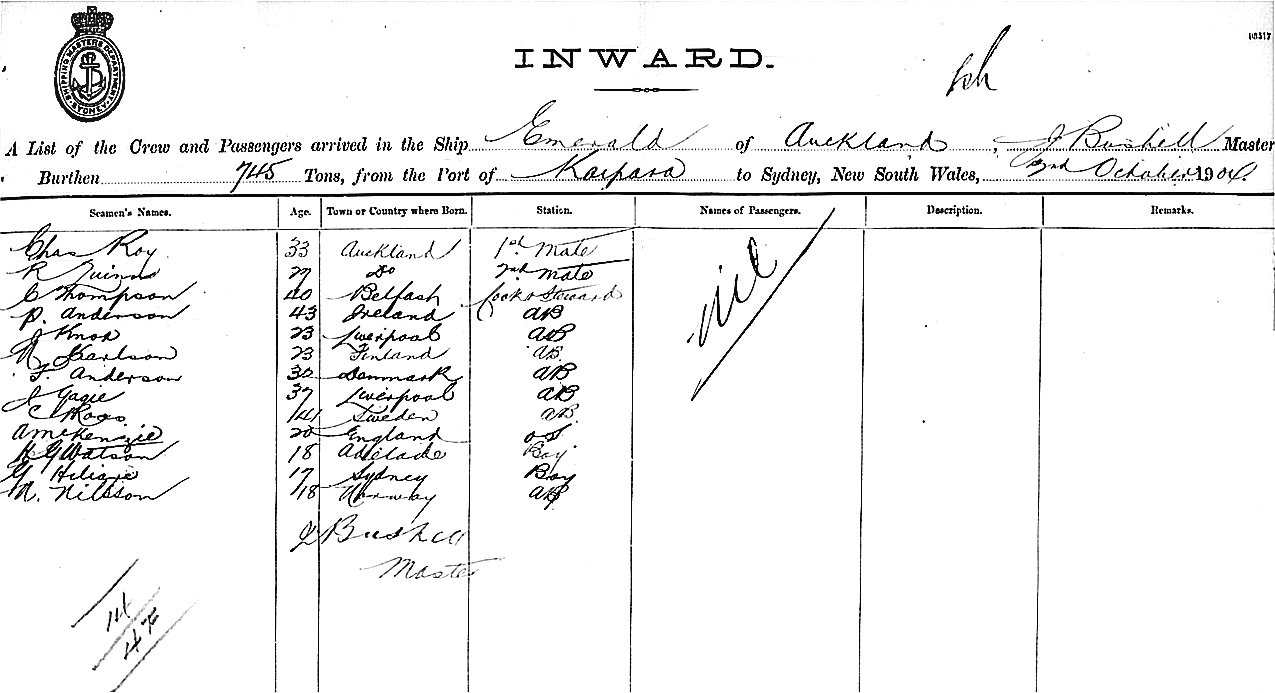 INWARD.
SHIPPING MASTERS DEPARTMENT SYDNEY
A List of the Crew and Passengers arrived in the Ship Emerald of Auckland, J Bushell Master
Burthen 745 Tons, from the Port of Kaipara to Sydney, New South Wales, 2nd October 190
Seamen's Names. Age. Town or Country where Born. Station. Names of Passengers. Description. Remarks.
Chas Roy 33 Auckland 1st Mate
R Quinn 27 Do 2nd Mate
C Thompson 40 Belfast Cook & Steward
P. Anderson 43 Ireland AB
J Knox 23 Liverpool AB
Karlson 23 Finland AB
F. Anderson 32 Denmark AB
J 37 Liverpool AB
C 41 Sweden AB
A McKenzie 20 England OS
H G Watson 18 Adelaide Boy
G 17 Sydney Boy
N. Nilsson 18 Norway AB
nil
J Bushell
Master